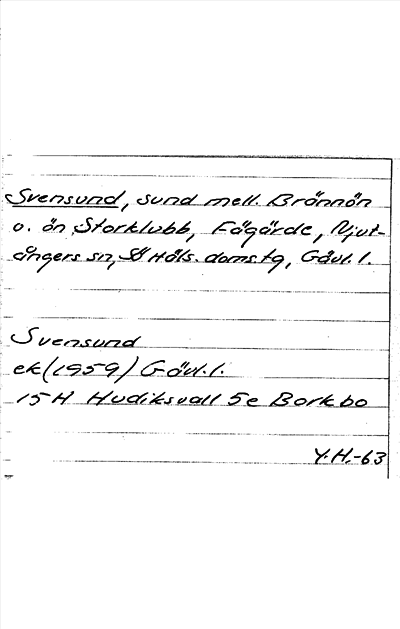 Svensund, sund mell. Brännön
o. ön Storklubb, Fägärde, Njut-
ångers sn, SÖ Häls. doms.tg, Gävl. l.
Svensund
ek (1959) Gävl. l.
15H Hudiksvall 5e Borkbo
Y.H.-63